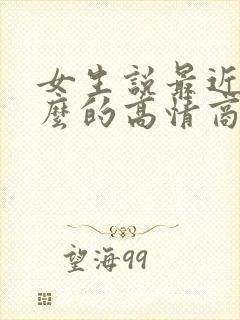 女生說最近
麼的高情商
望海99